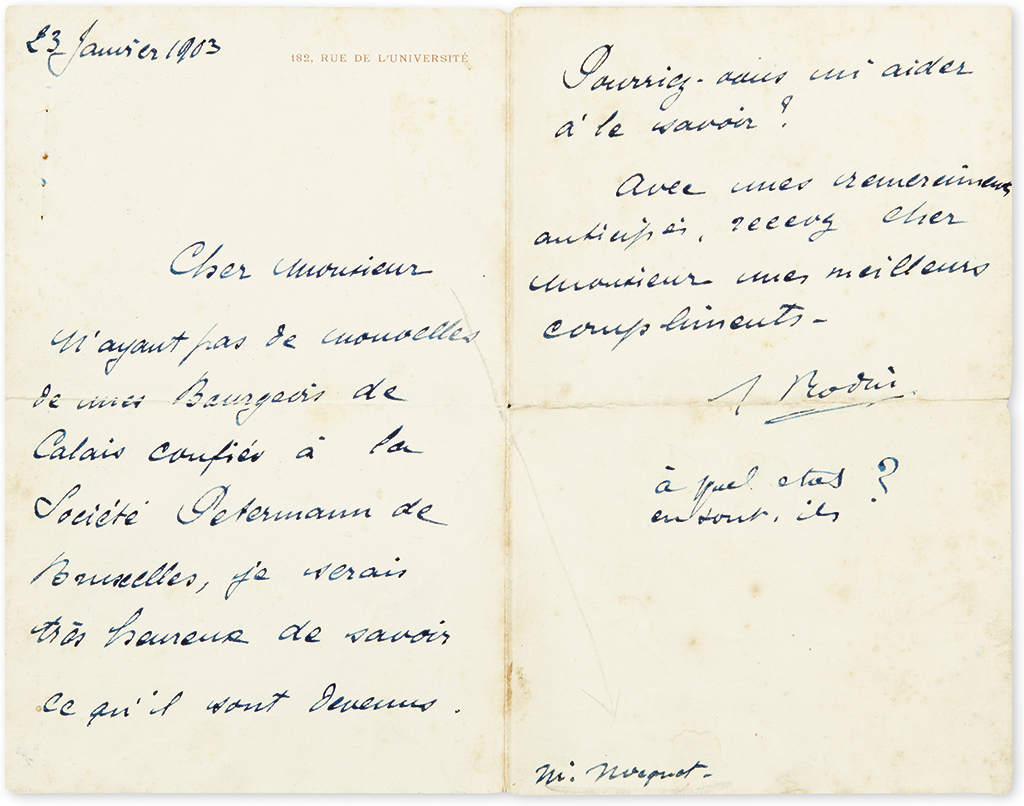 23 Janvier 1903
182, RUE DE L'UNIVERSITÉ
Cher Monsieur
N'ayant pas de nouvelles
de mes Bourgeois de
Calais confiés à la
Société Petermann de
Bruxelles, je serais
très heureux de savoir
ce qu'il sont devenus.
Pourriez-vous m'aider
à le savoir?
Avec mes remerciments
anticipés, recevez cher
Monsieur mes meilleurs
compliments-
A Rodin
à quel etat ?
en sont-ils
M.